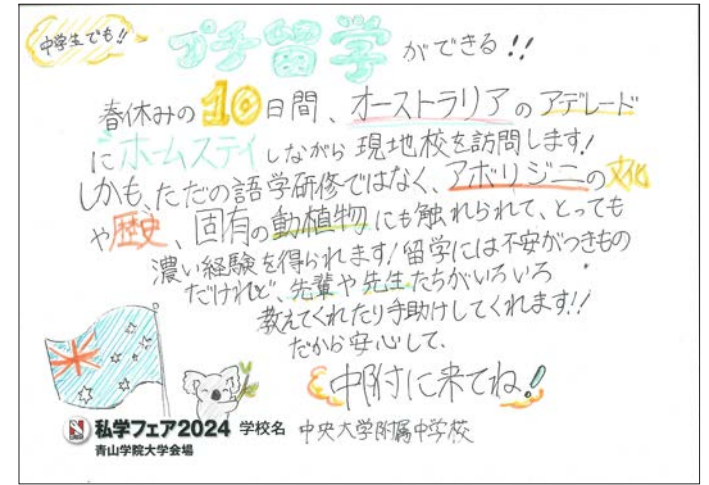 中学生でも!!
プチ留学ができる!!
春休みの10日間、オーストラリアのアデレード
にホームステイしながら現地校を訪問します!
しかも、ただの語学研修ではなく、アボリジニの文化
や歴史、固有の動植物にも触れられて、とっても
濃い経験を得られます!留学には不安がつきもの
だけれど、先輩や先生たちがいろいろ
教えてくれたり手助けしてくれます!!
だから安心して、
中附に来てね!
私学フェア2024 学校名 中央大学附属中学校
青山学院大学会場